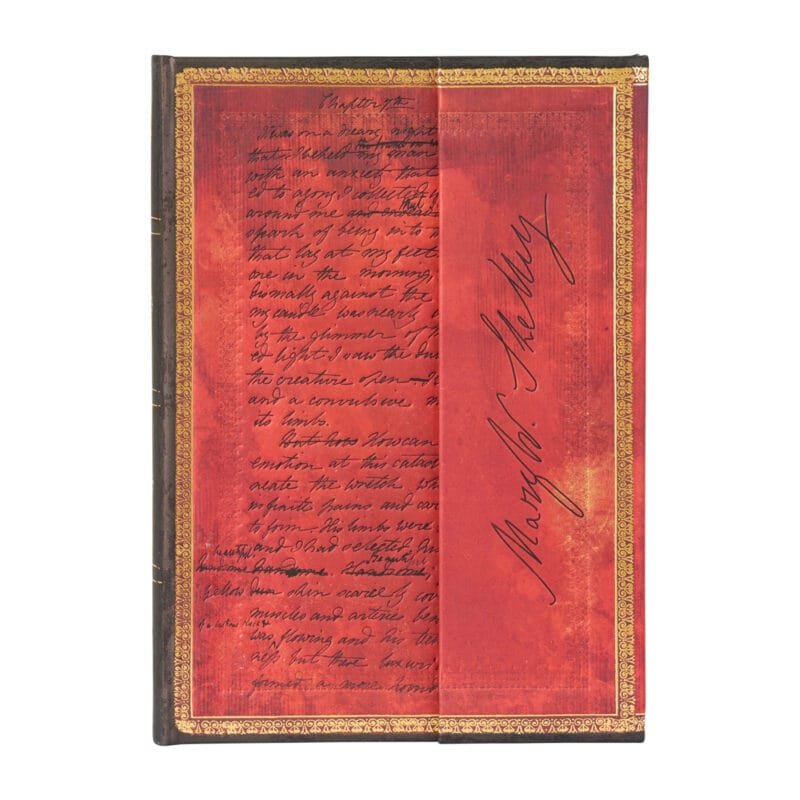 Chapter 7th
It was on a dreary night
the frame on w
that I beheld my man
with an anxiety that
ed to agony I collected
around me and endeav
that
spark of being into
that lay at my feet.
one in the morning,
dismally against the
my candle was nearly
by the glimmer of
ed light I saw the du
the creature open
and a convulsive m
its limbs.
But how How can
emotion at this catas
create the wretch wh
infinite pains and car
to form. His limbs were
and I had selected
beautiful
handsome. Handsome;
Beautiful
yellow dun skin scarcely cov
muscles and arteries ben
was flowing and his tee
ness but these luxuri
formed a more horrid
Mary W. Shelley